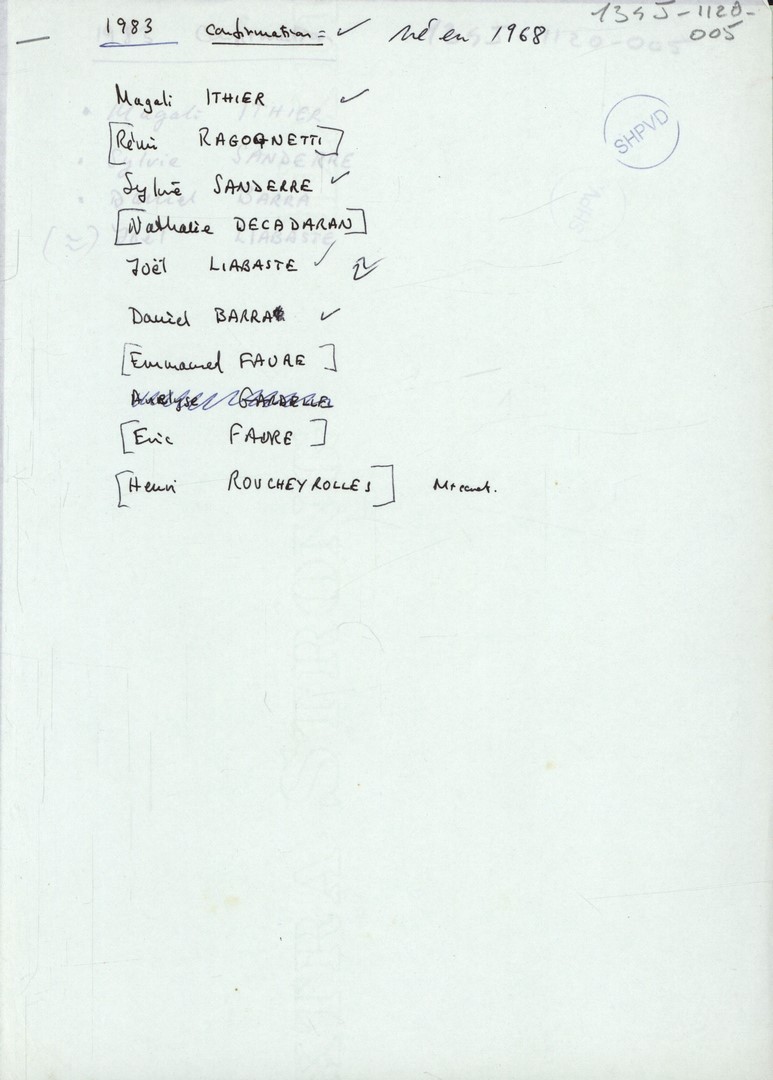 1345-1120-
005
1983 Confirmation = ✓ Né en 1968
SHPVD
Magali ITHIER ✓
[Rémi RAGOGNETTI]
Sylvie SANDERRE ✓
[Nathalie DECADARAN]
Joël LIABASTE ✓
Daniel BARRA ✓
[Emmanuel FAURE]
[Eric FAURE]
[Henri ROUCHEYROLLES]